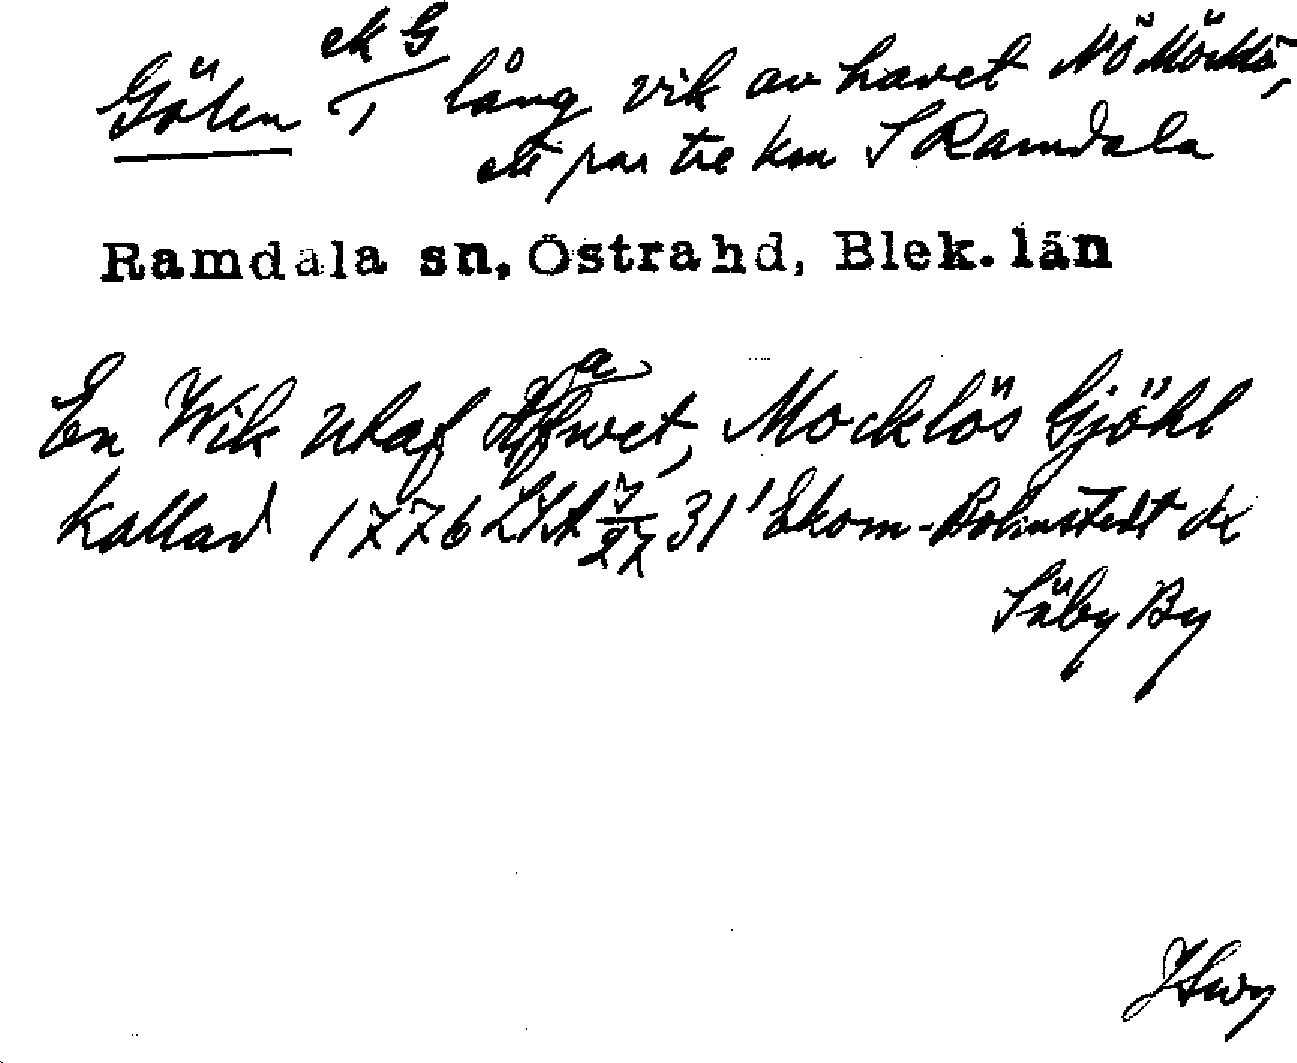 Gölen ek G/1 lång vik av havet NÖ Möcklö,
ett par tre km S Ramdala
Ramdala sn, Östra hd, Blek. län
En Wik utaf Hafwet, Mocklös Gjöhl
kallad 1776 LSA 31' Ekom. Bohnstedt
Säby By